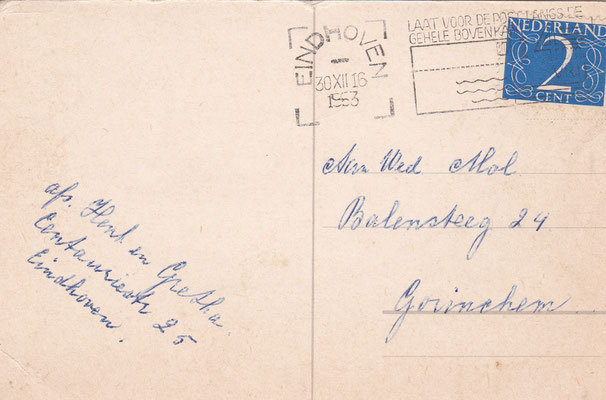 EINDHOVEN
30XII16
1953
LAAT VOOR DE POST LANGS DE
GEHELE BOVENKA
NEDERLAND
2
CENT
Aan Wed Mol.
Balensteeg 24
Gorinchem.
afs. Henk en Gretha.
Centauriestr 25
Eindhoven.